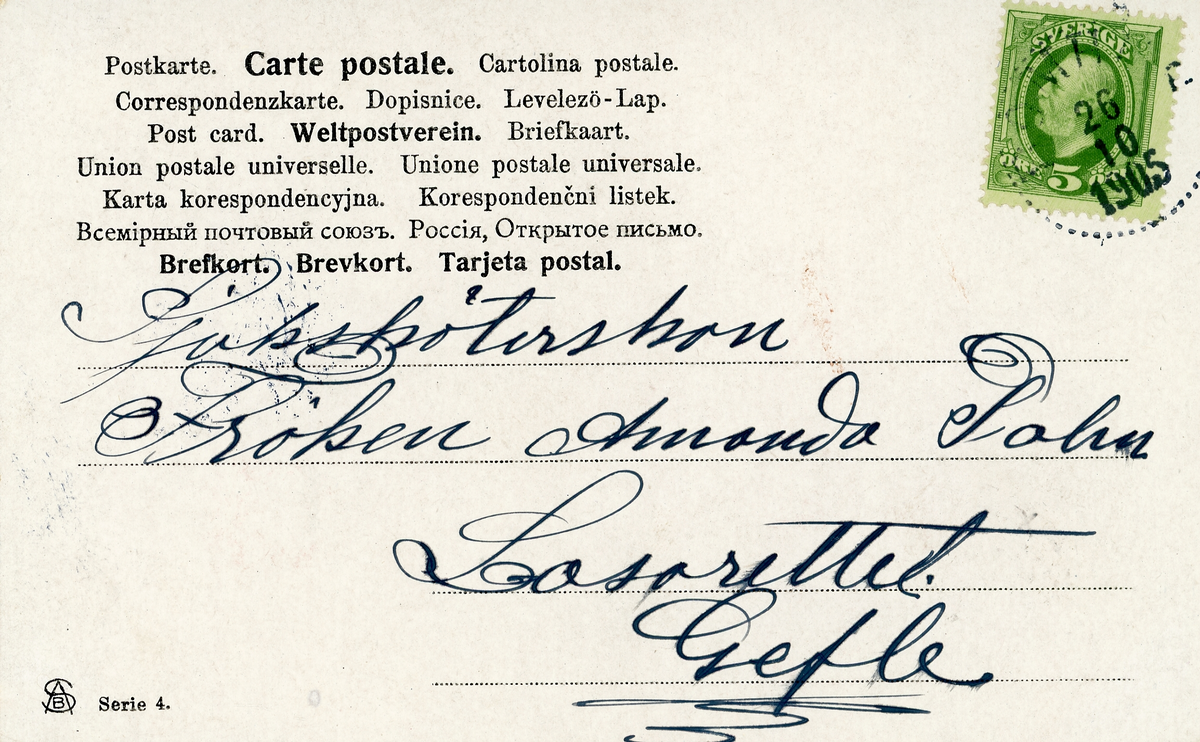 Postkarte. Carte postale. Cartolina postale.
Correspondenzkarte. Dopisnice. Levelezö-Lap.
Post card. Weltpostverein. Briefkaart.
Union postale universelle. Unione postale universale.
Karta korespondencyjna. Korespondenční listek.
Всемірный почтовый союзъ. Россія, Открытое письмо.
Brefkort. Brevkort. Tarjeta postal.
SVERIGE
ÖRE 5
26
10
1905
Sjuksköterskan
Fröken Amanda
Lasarettet.
Gefle.
Serie 4.